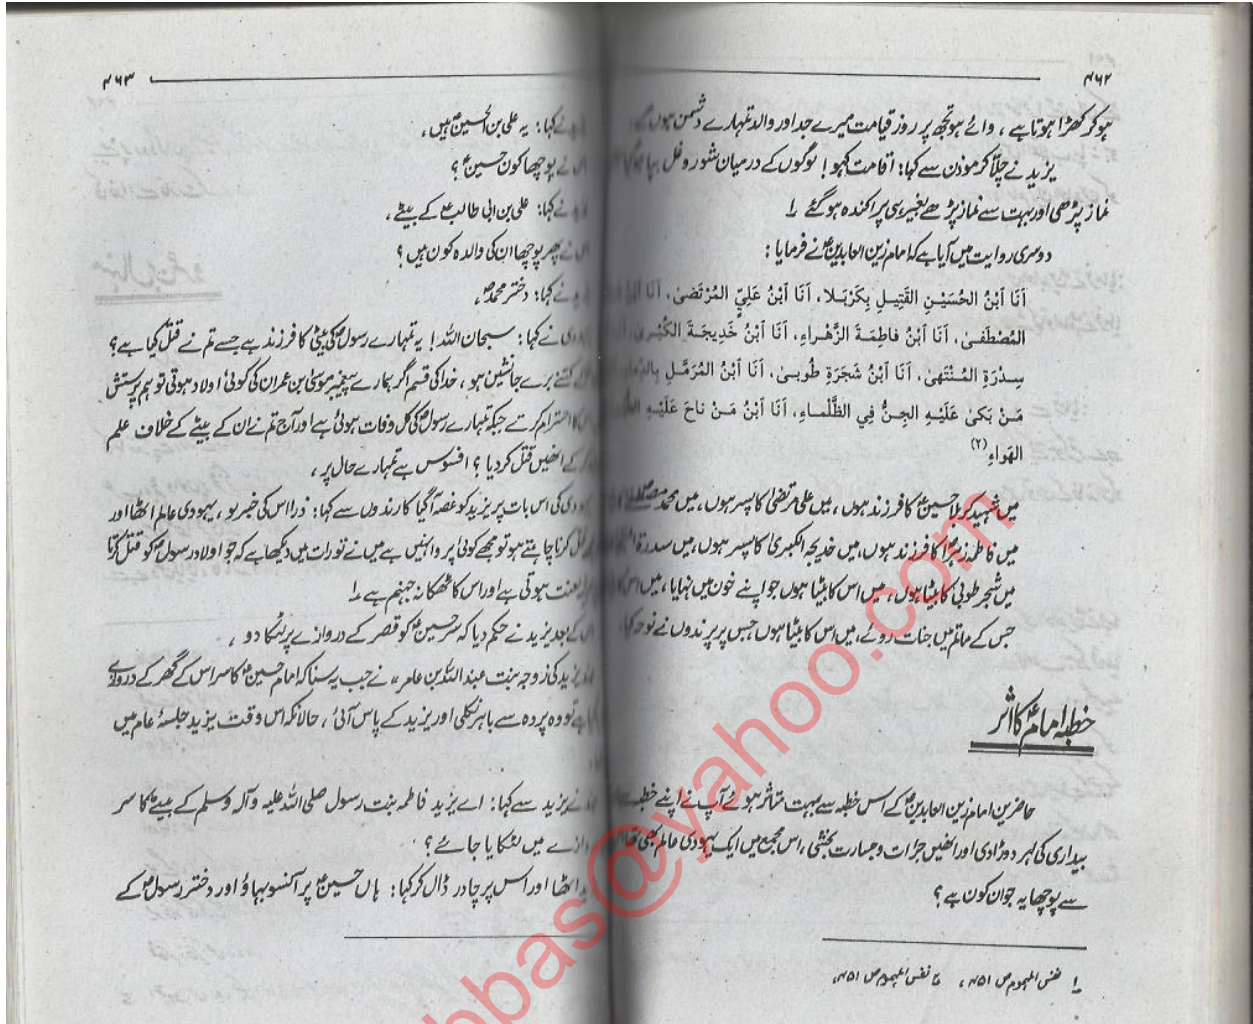 ۴۶۲
ہو کر کھڑا ہوتا ہے ، وائے ہو تجھ پر روز قیامت میرے جد اور والد تمہارے دشمن ہوں گے
یزید نے چلّا کر موذن سے کہا: اقامت کہو! لوگوں کے درمیان شور و غل بپا ہوگیا
نماز پڑھی اور بہت سے نماز پڑھے بغیر ہی پراکندہ ہو گئے ۱
دوسری روایت میں آیا ہے کہ امام زین العابدینؑ نے فرمایا :
اَنَا ابْنُ الحُسَيْنِ القَتِيلِ بِكَرْبَلا، اَنَا ابْنُ عَلِيٍّ المُرْتَضىٰ، اَنَا
المُصْطَفىٰ، اَنَا ابْنُ فاطِمَةَ الزَّهْراءِ، اَنَا ابْنُ خَدِيجَةَ الكُبْرىٰ
سِدْرَةِ المُنْتَهىٰ، اَنَا ابْنُ شَجَرَةِ طُوبىٰ، اَنَا ابْنُ المُرَمَّلِ
مَنْ بَكىٰ عَلَيْهِ الجِنُّ فِي الظَّلْماءِ، اَنَا ابْنُ مَنْ ناحَ عَلَيْهِ
الهَواءِ (۲)
میں شہید کربلا حسینؑ کا فرزند ہوں ، میں علی مرتضیٰ کا پسر ہوں، میں محمد مصطفیٰ
میں فاطمہ زہراؑ کا فرزند ہوں، میں خدیجہ الکبریٰ کا پسر ہوں، میں سدرۃ
میں شجر طوبیٰ کا بیٹا ہوں ، میں اس کا بیٹا ہوں جو اپنے خون میں نہایا ، میں اس
جس کے ماتم میں جنات روئے، میں اس کا بیٹا ہوں جس پر پرندوں نے نوحہ کیا
خطبہ امامؑ کا اثر
حاضرین امام زین العابدینؑ کے اس خطبہ سے بہت متاثر ہوئے آپ نے اپنے خطبہ سے
بیداری کی لہر دوڑا دی اور انھیں جرأت و جسارت بخشی ، اس مجمع میں ایک یہودی عالم بھی تھا
سے پوچھا یہ جوان کون ہے ؟
۱ نفس المہموم ص ۴۵۱ ، ۲ نفس المہموم ص ۴۵۱،
۴۶۳
نے کہا: یہ علی بن الحسینؑ ہیں ،
نے پوچھا کون حسینؑ ؟
نے کہا: علی بن ابی طالبؑ کے بیٹے ،
نے پھر پوچھا ان کی والدہ کون ہیں ؟
نے کہا: دختر محمدؐ ،
نے کہا : سبحان اللہ ! یہ تمہارے رسولؐ کی بیٹی کا فرزند ہے جسے تم نے قتل کیا ہے ؟
کتنے برے جانشین ہو ، خدا کی قسم اگر ہمارے پیغمبر موسیٰ بن عمران کی کوئی اولاد ہوتی تو ہم پرستش
احترام کرتے جبکہ تمہارے رسولؐ کی کل وفات ہوئی ہے اور آج تم نے ان کے بیٹے کے خلاف علم
کے انھیں قتل کر دیا ؟ افسوس ہے تمہارے حال پر ،
کی اس بات پر یزید کو غصہ آگیا کارندوں سے کہا : ذرا اس کی خبر لو ، یہودی عالم اٹھا اور
کرنا چاہتے ہو تو مجھے کوئی پروا نہیں ہے میں نے تورات میں دیکھا ہے کہ جو اولاد رسولؐ کو قتل کرتا
لعنت ہوتی ہے اور اس کا ٹھکانہ جہنم ہے ۱
کے بعد یزید نے حکم دیا کہ سر حسینؑ کو قصر کے دروازے پر لٹکا دو ،
یزید کی زوجہ بنت عبداللہ بن عامر نے جب یہ سنا کہ امام حسینؑ کا سر اس کے گھر کے دروازے
تو وہ پردہ سے باہر نکلی اور یزید کے پاس آئی ، حالانکہ اس وقت یزید جلسۂ عام میں
نے یزید سے کہا : اے یزید فاطمہ بنت رسول صلی اللہ علیہ وآلہ وسلم کے بیٹےؑ کا سر
میں لٹکایا جائے ؟
اٹھا اور اس پر چادر ڈال کر کہا : ہاں حسینؑ پر آنسو بہاؤ اور دختر رسولؐ کے
bbas@yahoo.com